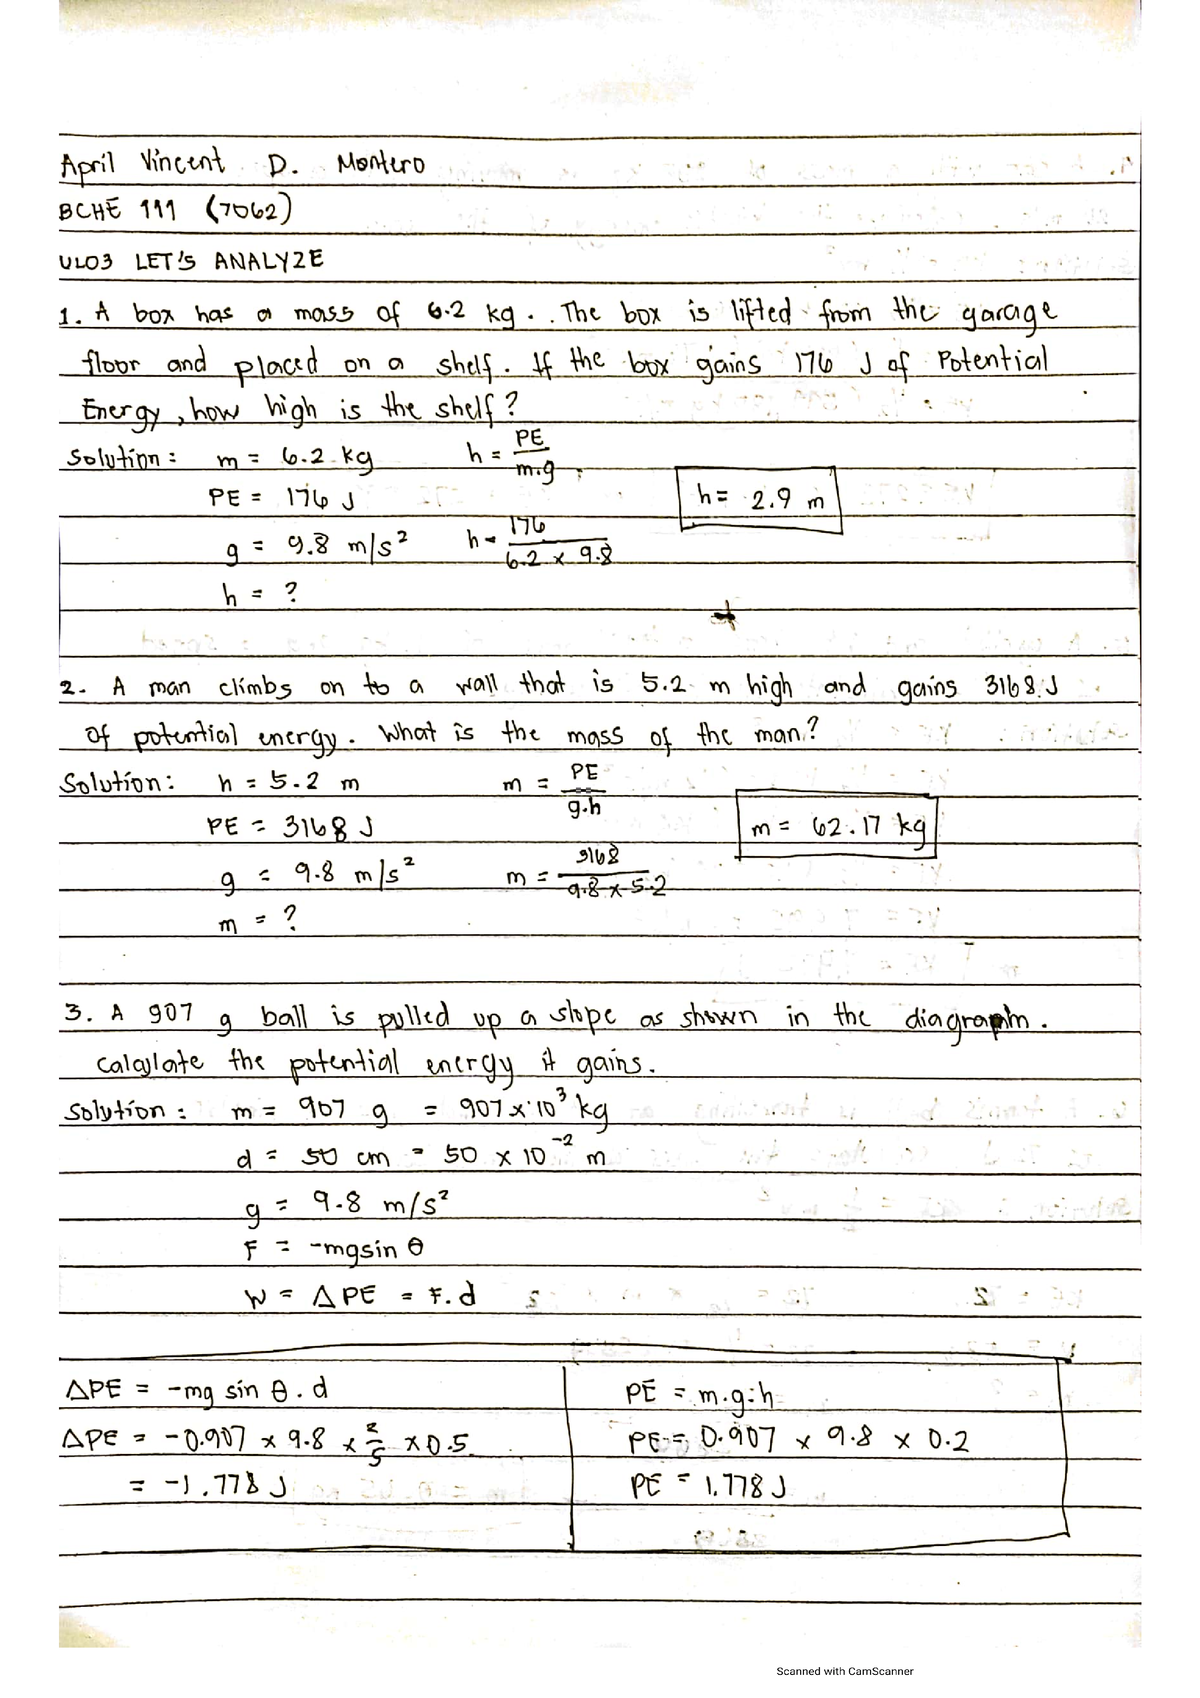 April Vincent D. Montero
BCHE 111 (7062)
ULO3 LET'S ANALYZE
1. A box has a mass of 6.2 kg. The box is lifted from the garage
floor and placed on a shelf. If the box gains 176 J of Potential
Energy, how high is the shelf?
Solution: m = 6.2 kg h = PE/m.g
PE = 176 J h = 2.9 m
g = 9.8 m/s² h = 176/6.2 x 9.8
h = ?
2. A man climbs on to a wall that is 5.2 m high and gains 3168 J
of potential energy. What is the mass of the man?
Solution: h = 5.2 m m = PE/g.h
PE = 3168 J m = 62.17 kg
g = 9.8 m/s² m = 3168/9.8 x 5.2
m = ?
3. A 907 g ball is pulled up a slope as shown in the diagram.
Calculate the potential energy it gains.
Solution: m = 907 g = 907 x 10³ kg
d = 50 cm = 50 x 10⁻² m
g = 9.8 m/s²
F = -mgsin θ
W = ΔPE = F.d
ΔPE = -mg sin θ . d
ΔPE = -0.907 x 9.8 x 2/5 x 0.5
= -1.778 J
PE = m.g.h
PE = 0.907 x 9.8 x 0.2
PE = 1.778 J
Scanned with CamScanner